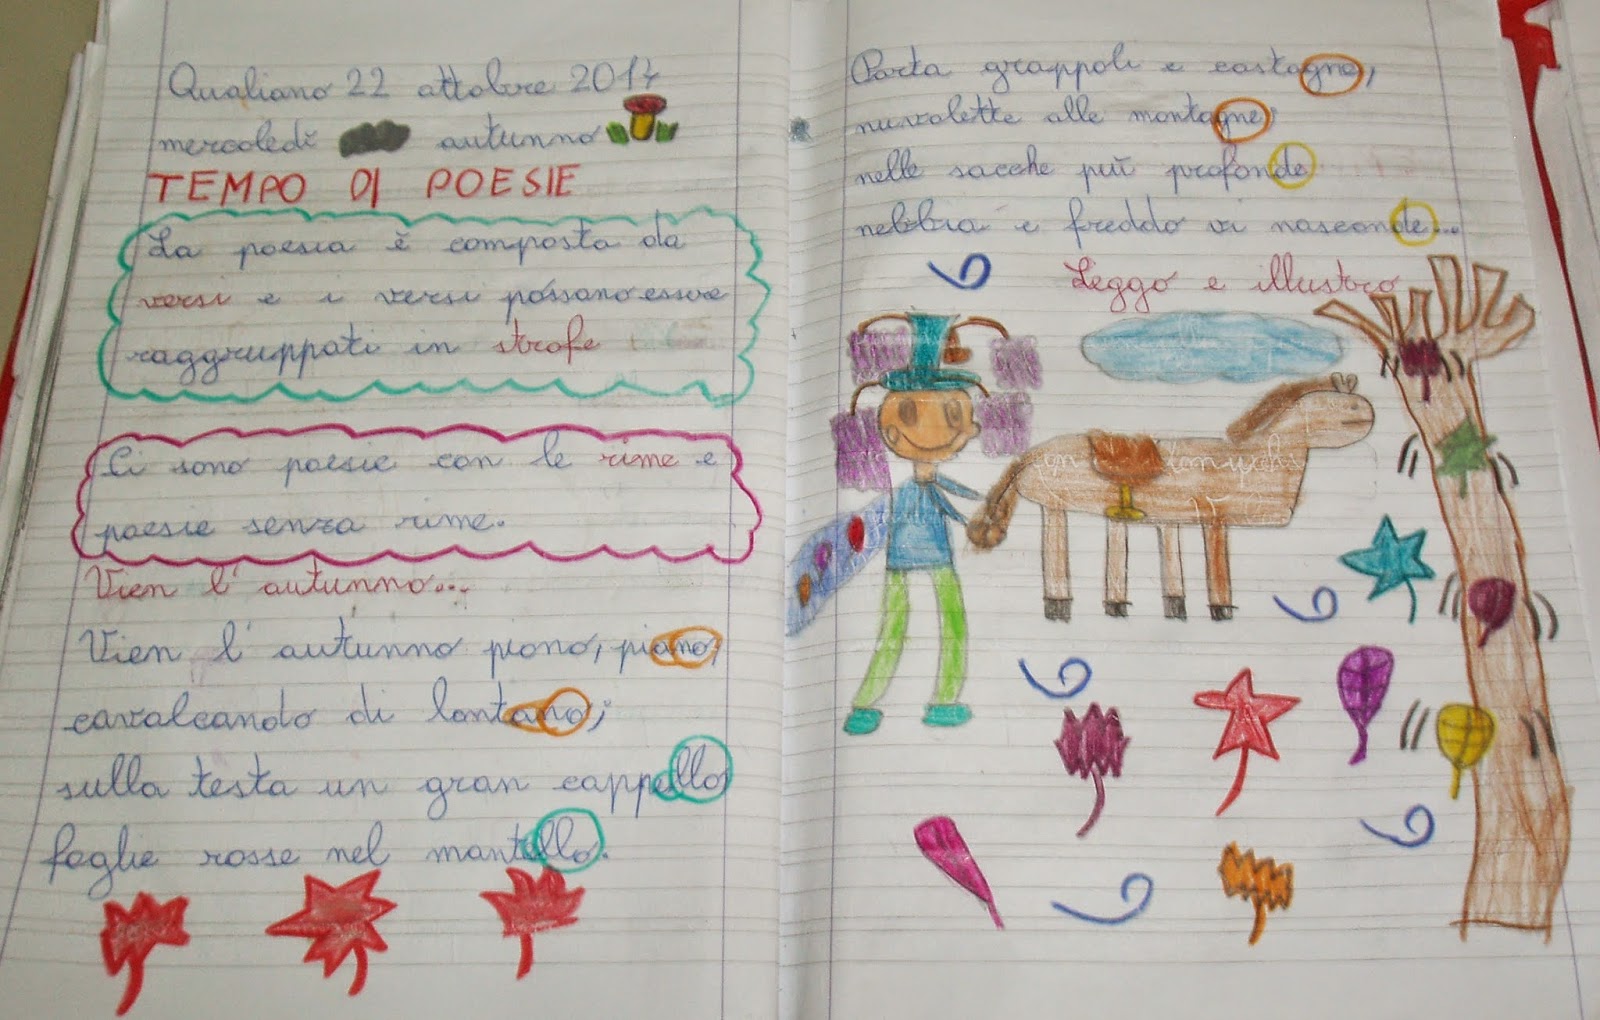 Qualiano 22 ottobre 2014
mercoledì autunno
TEMPO DI POESIE
La poesia è composta da
versi e i versi possono essere
raggruppati in strofe
Ci sono poesie con le rime e
poesie senza rime.
Vien l'autunno...
Vien l'autunno piano, piano,
cavalcando di lontano;
sulla testa un gran cappello
foglie rosse nel mantello.
Porta grappoli e castagne,
nuvolette alle montagne;
nelle sacche più profonde
nebbia e freddo vi nasconde...
Leggo e illustro